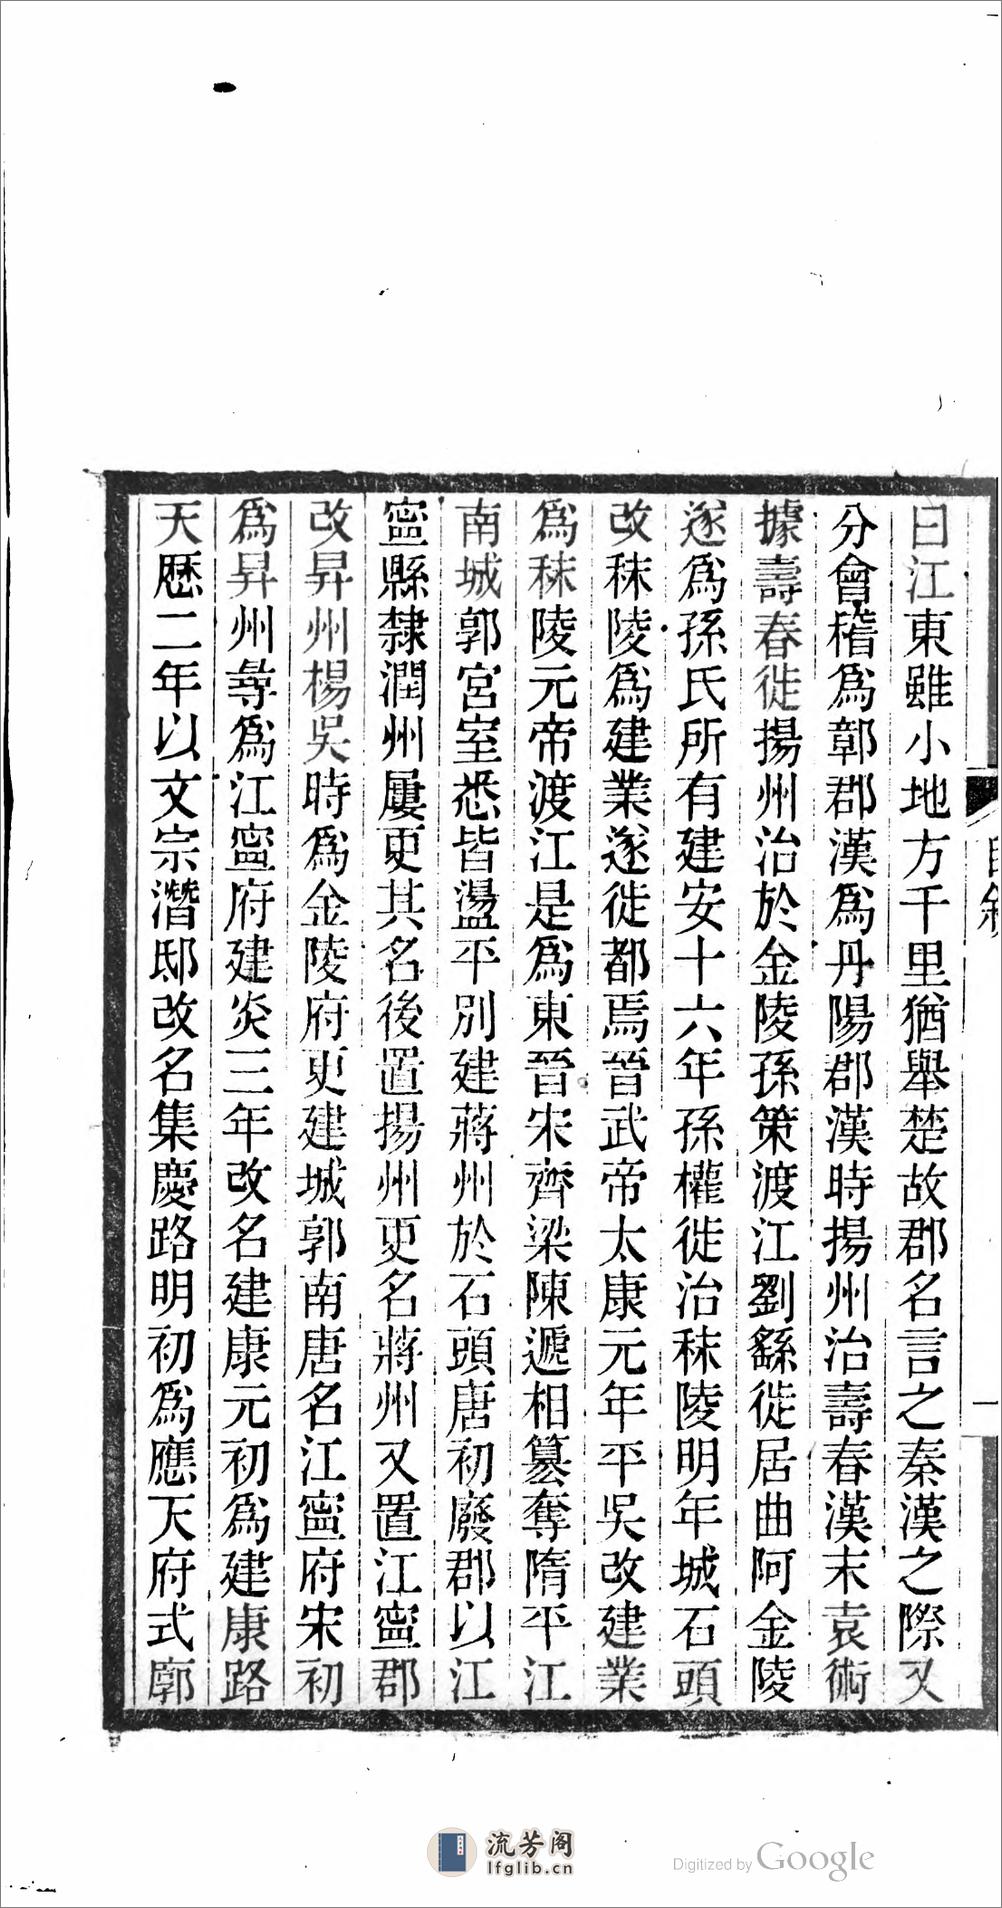 曰江東雖小地方千里猶舉楚故郡名言之秦漢之際又
分會稽爲鄣郡漢爲丹陽郡漢時揚州治壽春漢末袁術
據壽春徙揚州治於金陵孫策渡江劉繇徙居曲阿金陵
遂爲孫氏所有建安十六年孫權徙治秣陵明年城石頭
改秣陵爲建業遂徙都焉晉武帝太康元年平吳改建業
爲秣陵元帝渡江是爲東晉宋齊梁陳遞相篡奪隋平江
南城郭宮室悉皆盪平別建蔣州於石頭唐初廢郡以江
寧縣隸潤州屢更其名後置揚州更名蔣州又置江寧郡
改昇州楊吳時爲金陵府更建城郭南唐名江寧府宋初
爲昇州尋爲江寧府建炎三年改名建康元初爲建康路
天歷二年以文宗潛邸改名集慶路明初爲應天府式廓
一
流芳阁
lfglib.cn
Digitized by Google